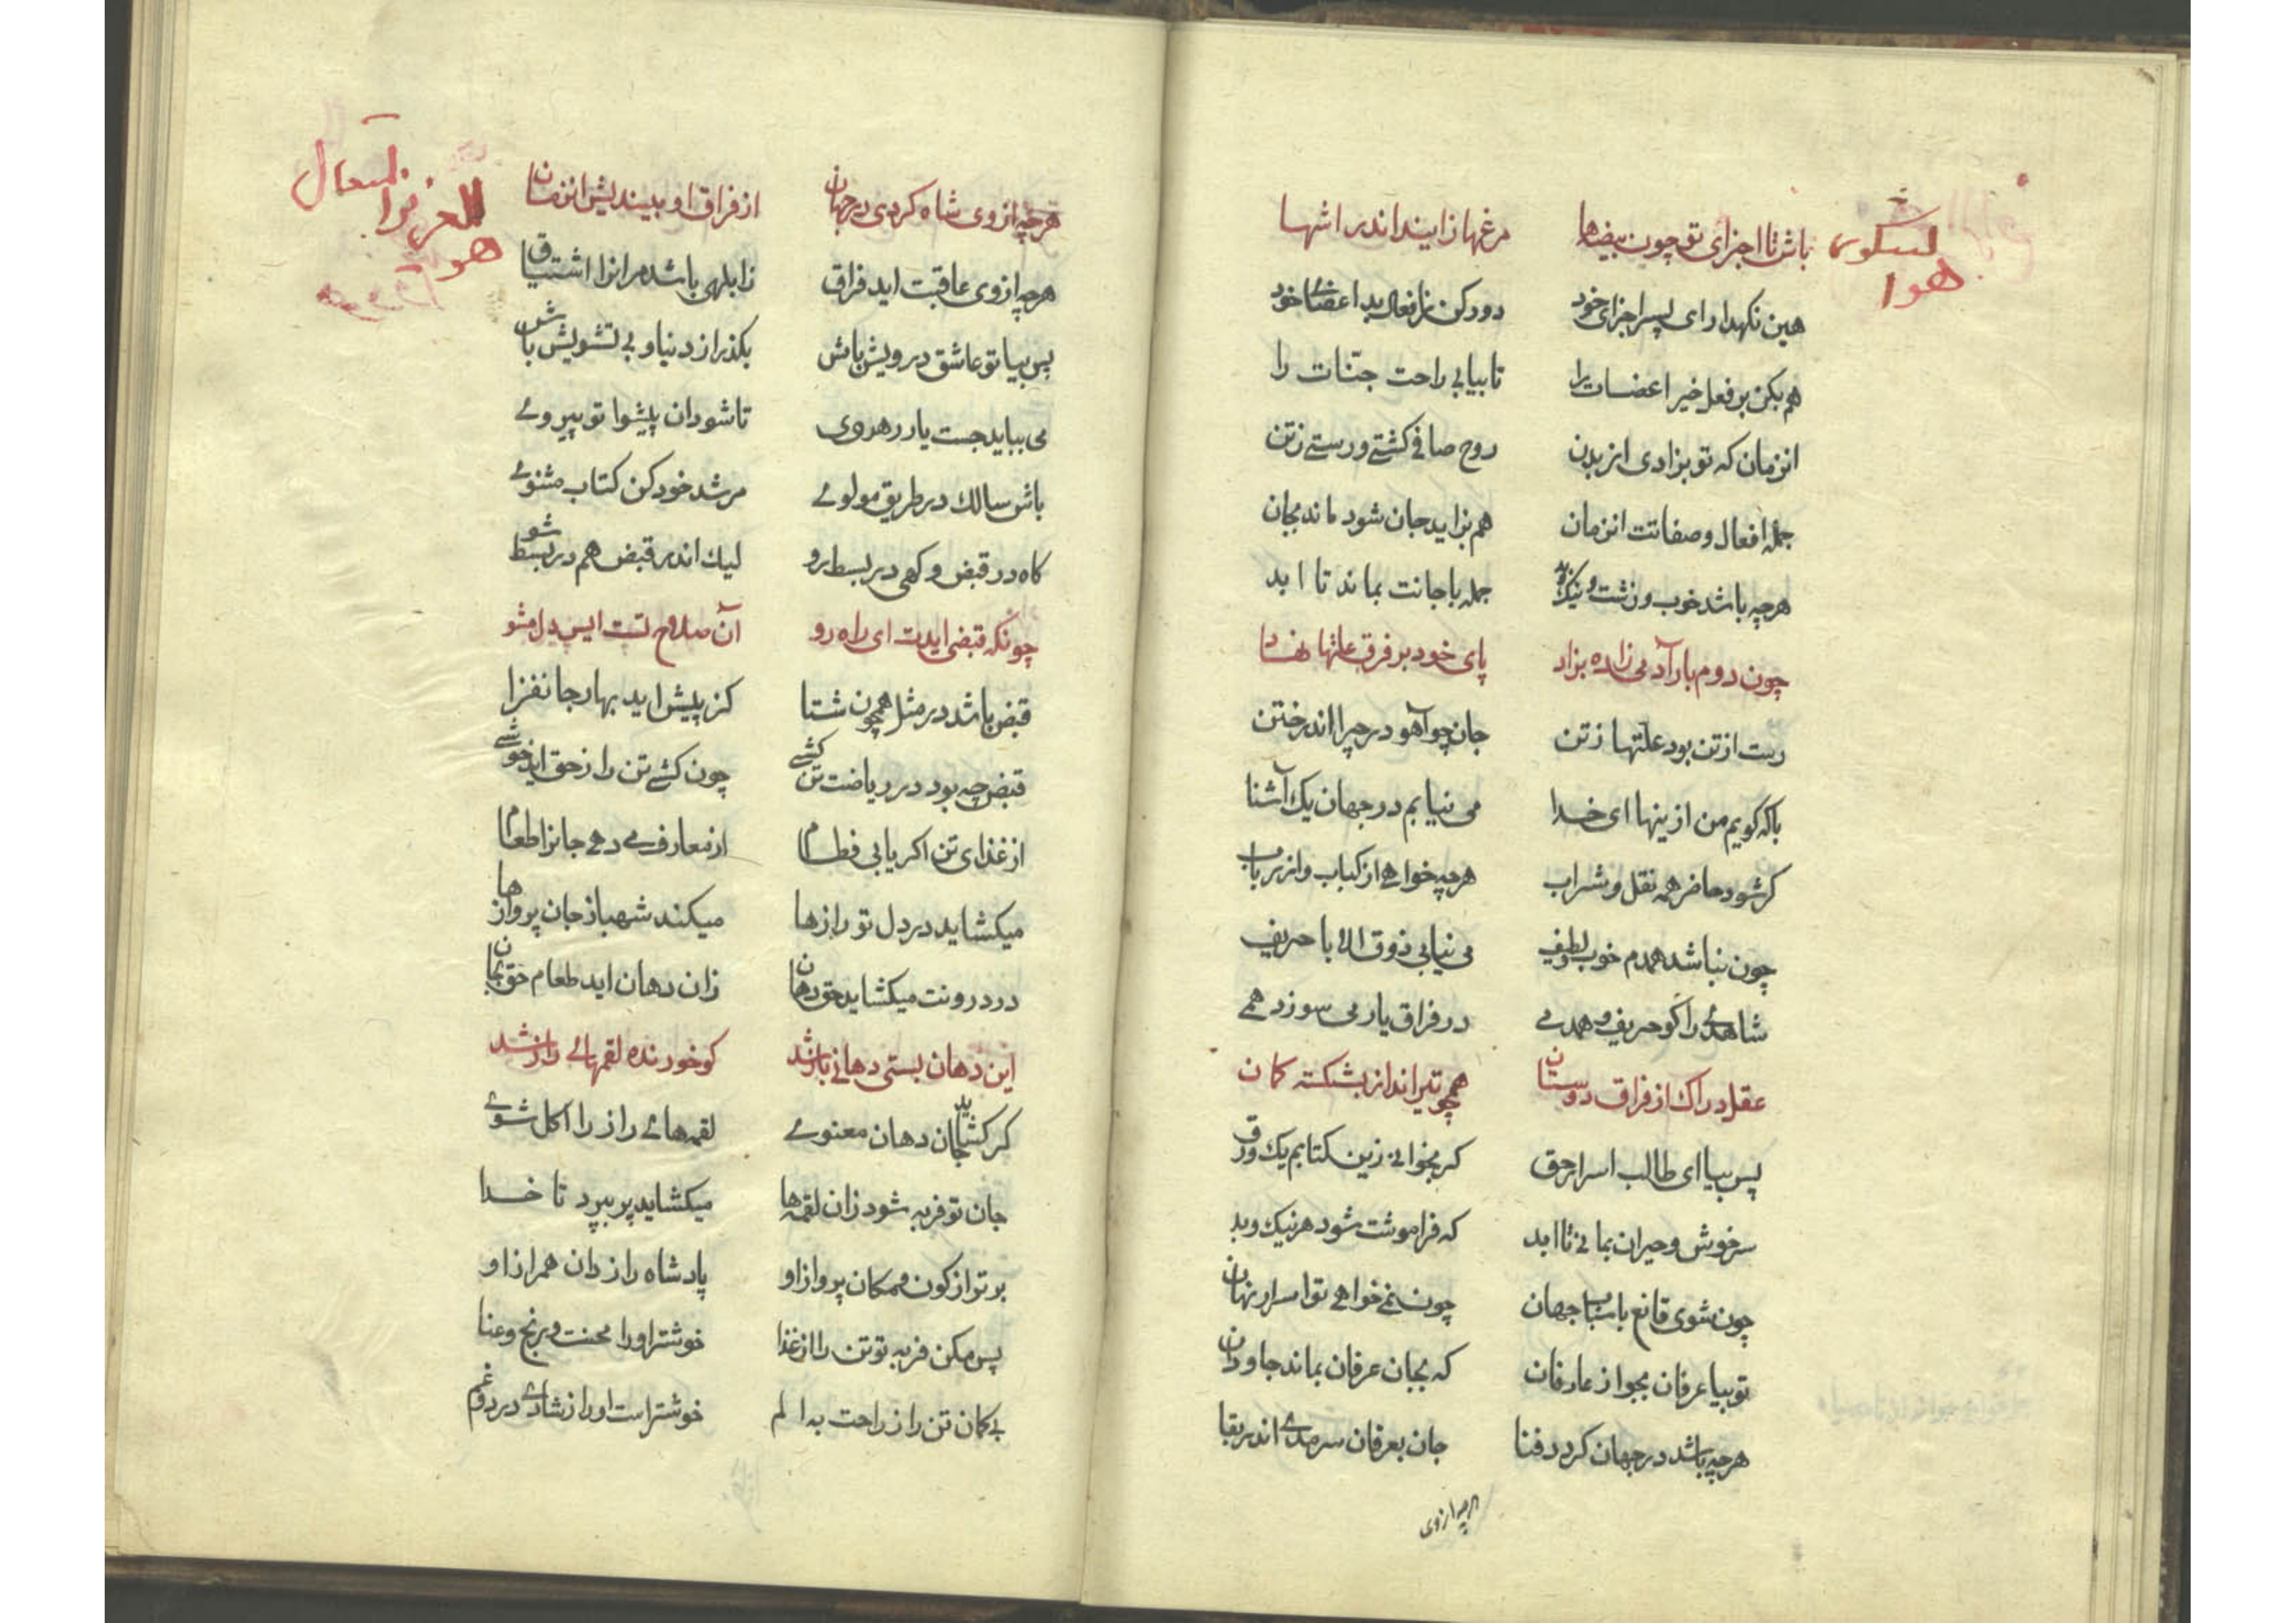 هو الشكور
باش تا اجزای تو چون بیضها مرغها زایند اندر اشها
هین نکهدار ای پسر اجزای خود دور کن از افعال بد اعضای خود
هم بکن بر فعل خیر اعضات را تا بیابی راحت جنّات را
انزمان که تو بزادی از بدن روح صافی کشتی و رستی زتن
جمله افعال و صفاتت انزمان هم بزاید جان شود ماند بجان
هرچه باشد خوب و زشت و نیک و بد جمله با جانت بماند تا ابد
چون دوم بار آدمی زاده بزاد پای خود بر فرق علتها نهاد
رست از تن بود علتها زتن جان چو آهو در چرا اندر ختن
باکه کویم من ازینها ای خدا می نیابم در جهان یک آشنا
کر شود حاضر همه نقل و شراب هرچه خواهی از کباب و از رباب
چون نباشد همدم خوب و لطیف می نیابی ذوق الا با حریف
شاهدی را کو حریف و همدمی در فراق یار می سوزد همی
عقل دراک از فراق دوستان همچو تیرانداز بشکسته کمان
پس بیا ای طالب اسرار حق کر بخوانی زین کتابم یک ورق
سرخوش و حیران بمانی تا ابد که فراموشت شود هر نیک و بد
چون شوی قانع باسباب جهان چون نمی خواهی تو اسرار نهان
تو بیا عرفان بجو از عارفان که بجان عرفان بماند جاودان
هرچه باشد در جهان کردد فنا جان بعرفان سرمدی اندر بقا
هرچه ازوی
هو
هرچه ازوی شاه کردی در جهان از فراق او بیندیش انزمان
هرچه ازوی عاقبت اید فراق زابلهی باشد مرانرا اشتیاق
پس بیا تو عاشق درویش باش بکذر از دنیا و بی تشویش باش
می بباید جست یار رهروی تا شود ان پیشوا تو پیروی
باش سالك در طریق مولوی مرشد خود کن کتاب مثنوی
کاه در قبض و کهی در بسط رو لیك اندر قبض هم در بسط شو
چونکه قبضی ایدت ای راه رو آن صلاح تست ایس دل مشو
قبض باشد در مثل همچون شتا کز پیش اید بهار جانفزا
قبض چه بود در ریاضت تن کشی چون کشی تن را زحق اید خوشی
از غذای تن اکر یابی فطام از معارف می دهی جانرا طعام
میکشاید در دل تو رازها میکند شهباز جان پروازها
در درونت میکشاید حق دهان زان دهان اید طعام حق بجان
این دهان بستی دهانی باز شد کو خورنده لقمهای راز شد
کر کشاید جان دهان معنوی لقمهای راز را اکل شوی
جان تو فربه شود زان لقمه‌ها میکشاید پر بپرد تا خدا
برتر از کون و مکان پرواز او پادشاه رازدان همراز او
پس مکن فربه تو تن را از غذا خوشتر اورا محنت و رنج و عنا
بی کمان تن را ز راحت به الم خوشتر است اورا زشادی درد و غم